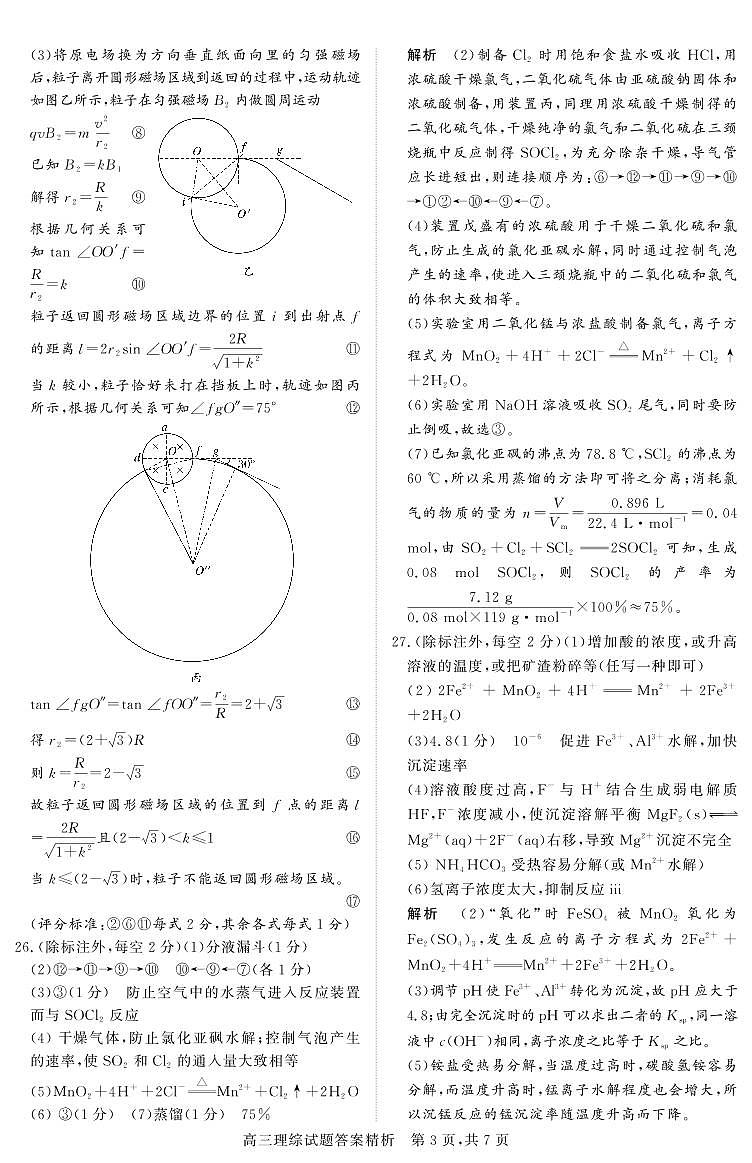 (3)将原电场换为方向垂直纸面向里的匀强磁场
后,粒子离开圆形磁场区域到返回的过程中,运动轨迹
如图乙所示,粒子在匀强磁场 B₂ 内做圆周运动
qvB₂=m v²/r₂ ⑧
已知 B₂=kB₁
解得 r₂=R/k ⑨
根据几何关系可
知 tan ∠OO′f=
R/r₂=k ⑩
O f g
i O′
乙
粒子返回圆形磁场区域边界的位置 i 到出射点 f
的距离 l=2r₂sin ∠OO′f=2R/√(1+k²) ⑪
当 k 较小,粒子恰好未打在挡板上时,轨迹如图丙
所示,根据几何关系可知∠fgO″=75° ⑫
a
d O f g 30°
c
O″
丙
tan ∠fgO″=tan ∠fOO″=r₂/R=2+√3 ⑬
得 r₂=(2+√3)R ⑭
则 k=R/r₂=2-√3 ⑮
故粒子返回圆形磁场区域的位置到 f 点的距离 l
=2R/√(1+k²)且(2-√3)<k≤1 ⑯
当 k≤(2-√3)时,粒子不能返回圆形磁场区域。
⑰
(评分标准:②⑥⑪每式 2 分,其余各式每式 1 分)
26.(除标注外,每空 2 分)(1)分液漏斗(1 分)
(2)⑫→⑪→⑨→⑩ ⑩←⑨←⑦(各 1 分)
(3)③(1 分) 防止空气中的水蒸气进入反应装置
而与 SOCl₂ 反应
(4) 干燥气体,防止氯化亚砜水解;控制气泡产生
的速率,使 SO₂ 和 Cl₂ 的通入量大致相等
(5)MnO₂+4H⁺+2Cl⁻ ≜ Mn²⁺+Cl₂↑+2H₂O
(6) ③(1 分) (7)蒸馏(1 分) 75%
解析 (2)制备 Cl₂ 时用饱和食盐水吸收 HCl,用
浓硫酸干燥氯气,二氧化硫气体由亚硫酸钠固体和
浓硫酸制备,用装置丙,同理用浓硫酸干燥制得的
二氧化硫气体,干燥纯净的氯气和二氧化硫在三颈
烧瓶中反应制得 SOCl₂,为充分除杂干燥,导气管
应长进短出,则连接顺序为:⑥→⑫→⑪→⑨→⑩
→①②←⑩←⑨←⑦。
(4)装置戊盛有的浓硫酸用于干燥二氧化硫和氯
气,防止生成的氯化亚砜水解,同时通过控制气泡
产生的速率,使进入三颈烧瓶中的二氧化硫和氯气
的体积大致相等。
(5)实验室用二氧化锰与浓盐酸制备氯气,离子方
程式为 MnO₂+4H⁺+2Cl⁻ ≜ Mn²⁺+Cl₂↑
+2H₂O。
(6)实验室用 NaOH 溶液吸收 SO₂ 尾气,同时要防
止倒吸,故选③。
(7)已知氯化亚砜的沸点为 78.8 ℃,SCl₂ 的沸点为
60 ℃,所以采用蒸馏的方法即可将之分离;消耗氯
气的物质的量为 n=V/Vₘ=0.896 L/22.4 L·mol⁻¹=0.04
mol,由 SO₂+Cl₂+SCl₂══2SOCl₂ 可知,生成
0.08 mol SOCl₂, 则 SOCl₂ 的产率为
7.12 g/0.08 mol×119 g·mol⁻¹×100%≈75%。
27.(除标注外,每空 2 分)(1)增加酸的浓度,或升高
溶液的温度,或把矿渣粉碎等(任写一种即可)
(2) 2Fe²⁺ + MnO₂ + 4H⁺ ══ Mn²⁺ + 2Fe³⁺
+2H₂O
(3)4.8(1 分) 10⁻⁶ 促进 Fe³⁺、Al³⁺水解,加快
沉淀速率
(4)溶液酸度过高,F⁻ 与 H⁺结合生成弱电解质
HF,F⁻浓度减小,使沉淀溶解平衡 MgF₂(s)⇌
Mg²⁺(aq)+2F⁻(aq)右移,导致 Mg²⁺沉淀不完全
(5) NH₄HCO₃ 受热容易分解(或 Mn²⁺水解)
(6)氢离子浓度太大,抑制反应 iii
解析 (2)“氧化”时 FeSO₄ 被 MnO₂ 氧化为
Fe₂(SO₄)₃,发生反应的离子方程式为 2Fe²⁺+
MnO₂+4H⁺══Mn²⁺+2Fe³⁺+2H₂O。
(3)调节 pH 使 Fe³⁺、Al³⁺转化为沉淀,故 pH 应大于
4.8;由完全沉淀时的 pH 可以求出二者的 Kₛₚ,同一溶
液中 c(OH⁻)相同,离子浓度之比等于 Kₛₚ 之比。
(5)铵盐受热易分解,当温度过高时,碳酸氢铵容易
分解,而温度升高时,锰离子水解程度也会增大,所
以沉锰反应的锰沉淀率随温度升高而下降。
高三理综试题答案精析 第 3 页,共 7 页